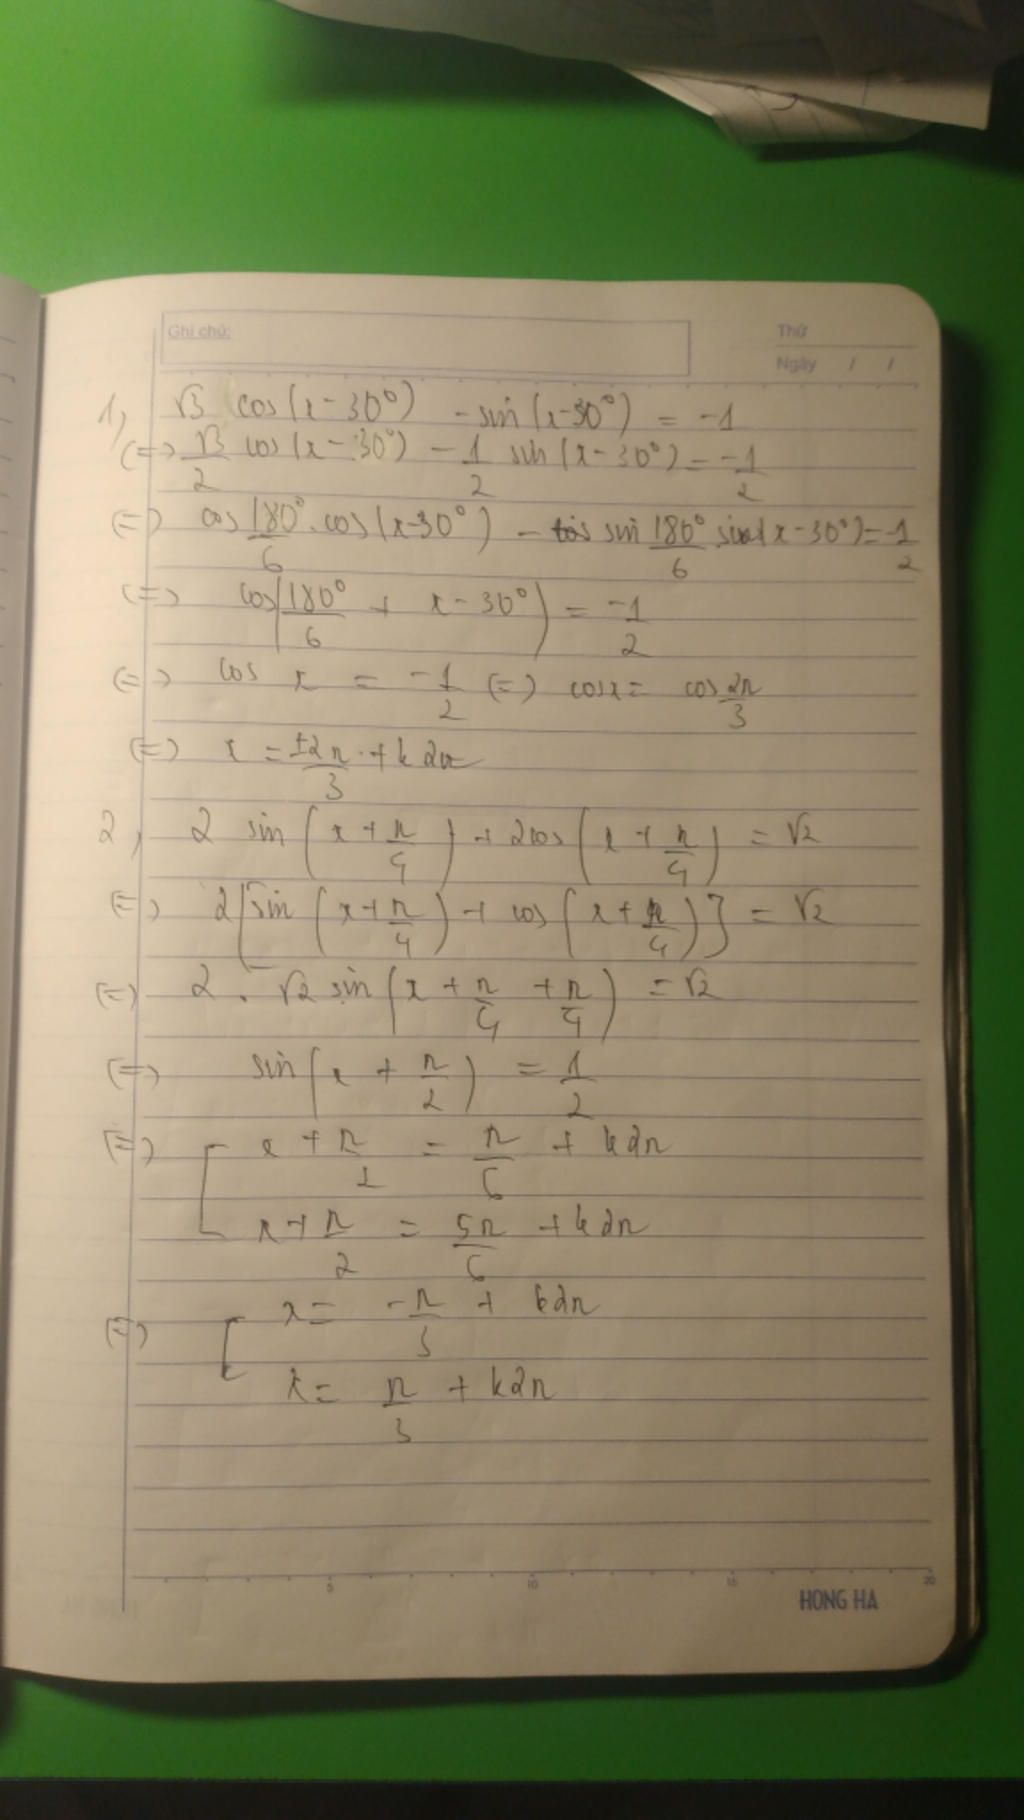 Ghi chú:
Thứ
Ngày / /
1, √3 cos(x-30°) - sin(x-30°) = -1
(=) √3/2 cos(x-30°) - 1/2 sin(x-30°) = -1/2
(=) cos 180°/6 . cos(x-30°) - sin 180°/6 . sin(x-30°) = -1/2
(=) cos(180°/6 + x-30°) = -1/2
(=) cos x = -1/2 (=) cosx = cos 2π/3
(=) x = ±2π/3 + k2π
2, 2 sin(x+π/4) + 2cos(x+π/4) = √2
(=) 2[sin(x+π/4) + cos(x+π/4)] = √2
(=) 2 . √2 sin(x + π/4 + π/4) = √2
(=) sin(x + π/2) = 1/2
(=) [ x + π/2 = π/6 + k2π
x + π/2 = 5π/6 + k2π
(=) [ x = -π/3 + k2π
x = π/3 + k2π
5 10 15 20
HONG HA